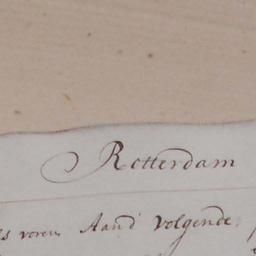 Rotterdam
ls voren Aand volgende